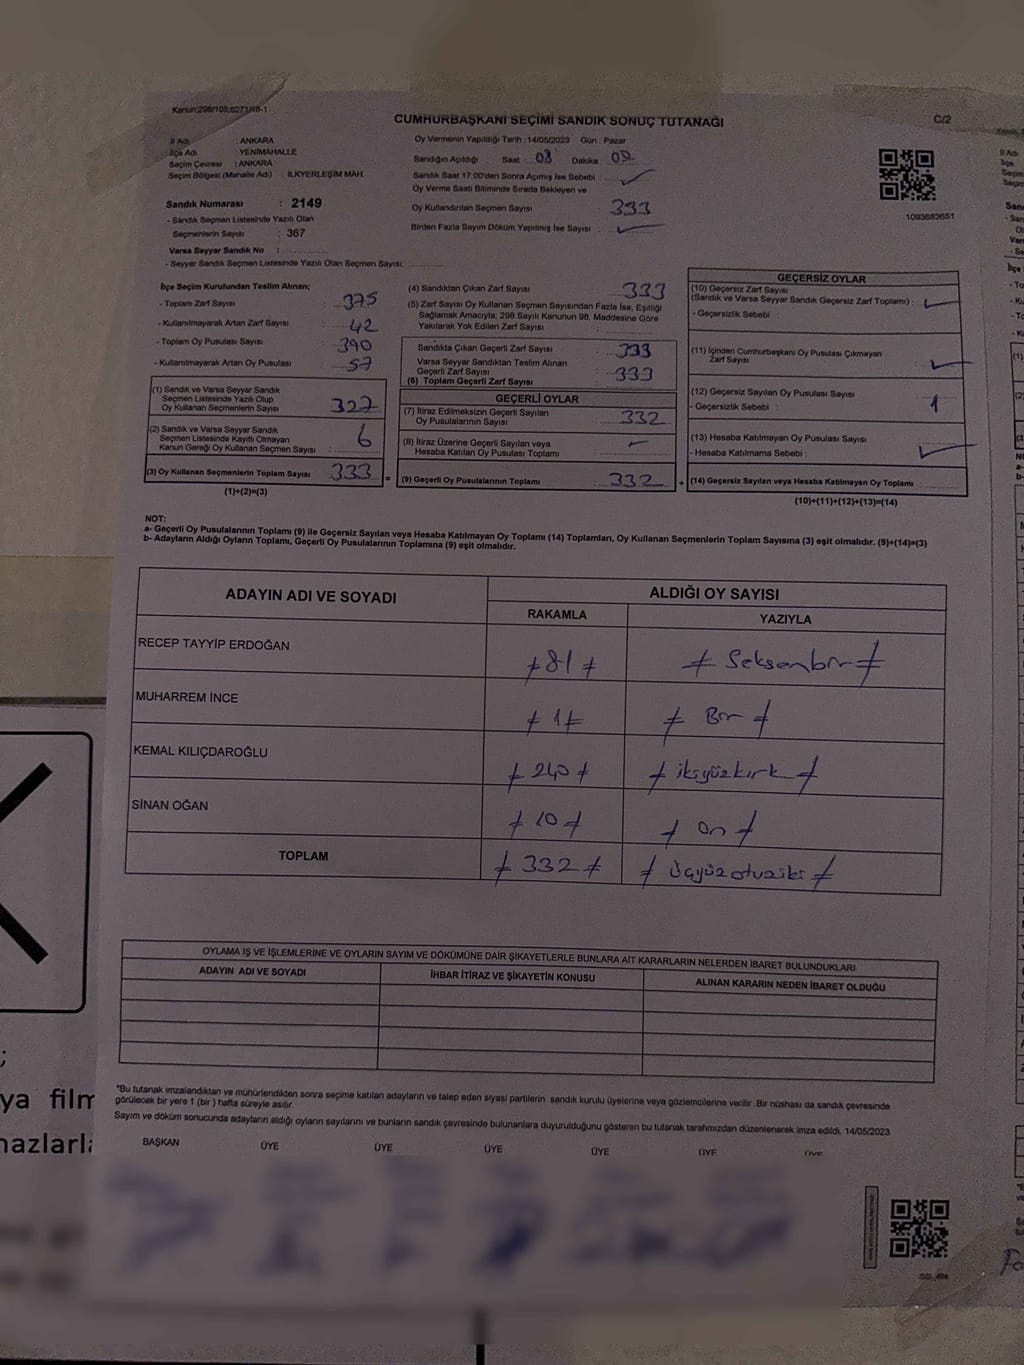 Kanun:298/105;6271/18-1
CUMHURBAŞKANI SEÇİMİ SANDIK SONUÇ TUTANAĞI
C/2
İl Adı : ANKARA
İlçe Adı : YENİMAHALLE
Seçim Çevresi : ANKARA
Seçim Bölgesi (Mahalle Adı) : İLKYERLEŞİM MAH.
Oy Vermenin Yapıldığı Tarih : 14/05/2023 Gün : Pazar
Sandığın Açıldığı Saat : 08 Dakika : 00
Sandık Saat 17:00'den Sonra Açılmış İse Sebebi :
Oy Verme Saati Bitiminde Sırada Bekleyen ve
Oy Kullandırılan Seçmen Sayısı : 333
Birden Fazla Sayım Döküm Yapılmış İse Sayısı :
1093683651
Sandık Numarası : 2149
- Sandık Seçmen Listesinde Yazılı Olan
Seçmenlerin Sayısı : 367
Varsa Seyyar Sandık No :
- Seyyar Sandık Seçmen Listesinde Yazılı Olan Seçmen Sayısı:
İlçe Seçim Kurulundan Teslim Alınan;
- Toplam Zarf Sayısı : 375
- Kullanılmayarak Artan Zarf Sayısı : 42
- Toplam Oy Pusulası Sayısı : 390
- Kullanılmayarak Artan Oy Pusulası : 57
(1) Sandık ve Varsa Seyyar Sandık
Seçmen Listesinde Yazılı Olup
Oy Kullanan Seçmenlerin Sayısı : 327
(2) Sandık ve Varsa Seyyar Sandık
Seçmen Listesinde Kayıtlı Olmayan
Kanun Gereği Oy Kullanan Seçmen Sayısı : 6
(3) Oy Kullanan Seçmenlerin Toplam Sayısı : 333
(1)+(2)=(3)
(4) Sandıktan Çıkan Zarf Sayısı : 333
(5) Zarf Sayısı Oy Kullanan Seçmen Sayısından Fazla İse, Eşitliği
Sağlamak Amacıyla, 298 Sayılı Kanunun 98. Maddesine Göre
Yakılarak Yok Edilen Zarf Sayısı :
Sandıkta Çıkan Geçerli Zarf Sayısı : 333
Varsa Seyyar Sandıktan Teslim Alınan
Geçerli Zarf Sayısı : 333
(6) Toplam Geçerli Zarf Sayısı :
GEÇERLİ OYLAR
(7) İtiraz Edilmeksizin Geçerli Sayılan
Oy Pusulalarının Sayısı : 332
(8) İtiraz Üzerine Geçerli Sayılan veya
Hesaba Katılan Oy Pusulası Toplamı :
(9) Geçerli Oy Pusulalarının Toplamı : 332
GEÇERSİZ OYLAR
(10) Geçersiz Zarf Sayısı
(Sandık ve Varsa Seyyar Sandık Geçersiz Zarf Toplamı) :
- Geçersizlik Sebebi :
(11) İçinden Cumhurbaşkanı Oy Pusulası Çıkmayan
Zarf Sayısı :
(12) Geçersiz Sayılan Oy Pusulası Sayısı : 1
- Geçersizlik Sebebi :
(13) Hesaba Katılmayan Oy Pusulası Sayısı :
- Hesaba Katılmama Sebebi :
(14) Geçersiz Sayılan veya Hesaba Katılmayan Oy Toplamı :
(10)+(11)+(12)+(13)=(14)
NOT:
a- Geçerli Oy Pusulalarının Toplamı (9) ile Geçersiz Sayılan veya Hesaba Katılmayan Oy Toplamı (14) Toplamları, Oy Kullanan Seçmenlerin Toplam Sayısına (3) eşit olmalıdır. (9)+(14)=(3)
b- Adayların Aldığı Oyların Toplamı, Geçerli Oy Pusulalarının Toplamına (9) eşit olmalıdır.
ADAYIN ADI VE SOYADI
ALDIĞI OY SAYISI
RAKAMLA YAZIYLA
RECEP TAYYİP ERDOĞAN 81 Seksenbir
MUHARREM İNCE 1 Bir
KEMAL KILIÇDAROĞLU 240 ikiyüzkırk
SİNAN OĞAN 10 On
TOPLAM 332 Üçyüzotuziki
OYLAMA İŞ VE İŞLEMLERİNE VE OYLARIN SAYIM VE DÖKÜMÜNE DAİR ŞİKAYETLERLE BUNLARA AİT KARARLARIN NELERDEN İBARET BULUNDUKLARI
ADAYIN ADI VE SOYADI İHBAR İTİRAZ VE ŞİKAYETİN KONUSU ALINAN KARARIN NEDEN İBARET OLDUĞU
*Bu tutanak imzalandıktan ve mühürlendikten sonra seçime katılan adayların ve talep eden siyasi partilerin sandık kurulu üyelerine veya gözlemcilerine verilir. Bir nüshası da sandık çevresinde
görülecek bir yere 1 (bir) hafta süreyle asılır.
Sayım ve döküm sonucunda adayların aldığı oyların sayılarını ve bunların sandık çevresinde bulunanlara duyurulduğunu gösteren bu tutanak tarafımızdan düzenlenerek imza edildi. 14/05/2023
BAŞKAN ÜYE ÜYE ÜYE ÜYE ÜYE ÜYE
ya film